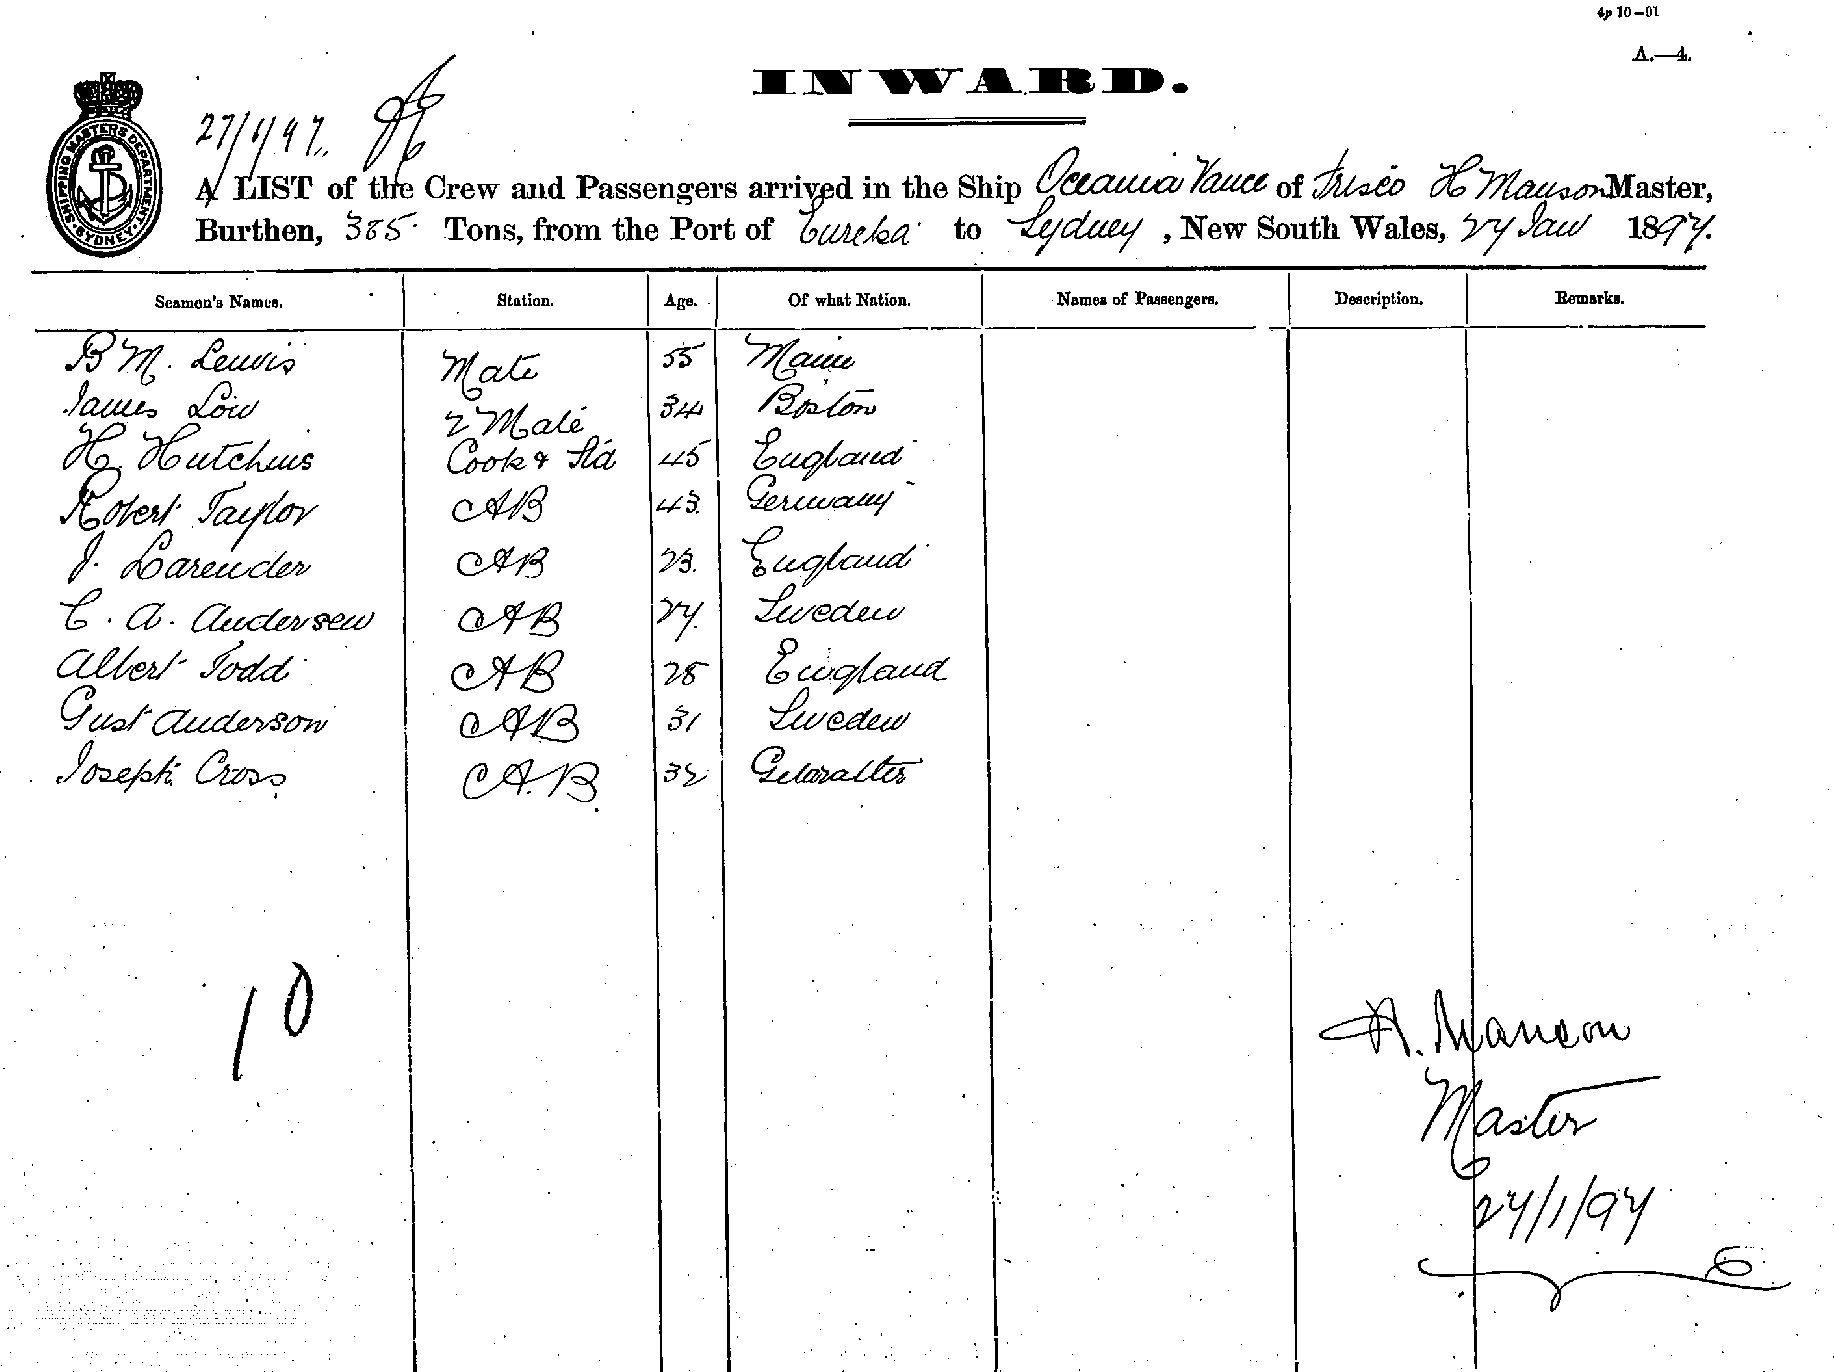 4p 10-01
A.—4.
INWARD.
SHIPPING MASTERS DEPARTMENT SYDNEY
27/1/97
A LIST of the Crew and Passengers arrived in the Ship Oceania Vance of Frisco H Manson Master,
Burthen, 385 Tons, from the Port of Eureka to Sydney, New South Wales, 27 Jan 1897.
Seamen's Names. Station. Age. Of what Nation. Names of Passengers. Description. Remarks.
B M. Lewis Mate 55 Maine
James Low 2 Mate 34 Boston
H. Hutchins Cook & Std 45 England
Robert Taylor AB 43 Germany
J. Larender AB 23. England
C. A. Andersen AB 27. Sweden
Albert Todd AB 28 England
Gust Anderson AB 31 Sweden
Joseph Cross A.B 32 Gibralter
10
H. Manson
Master
27/1/97